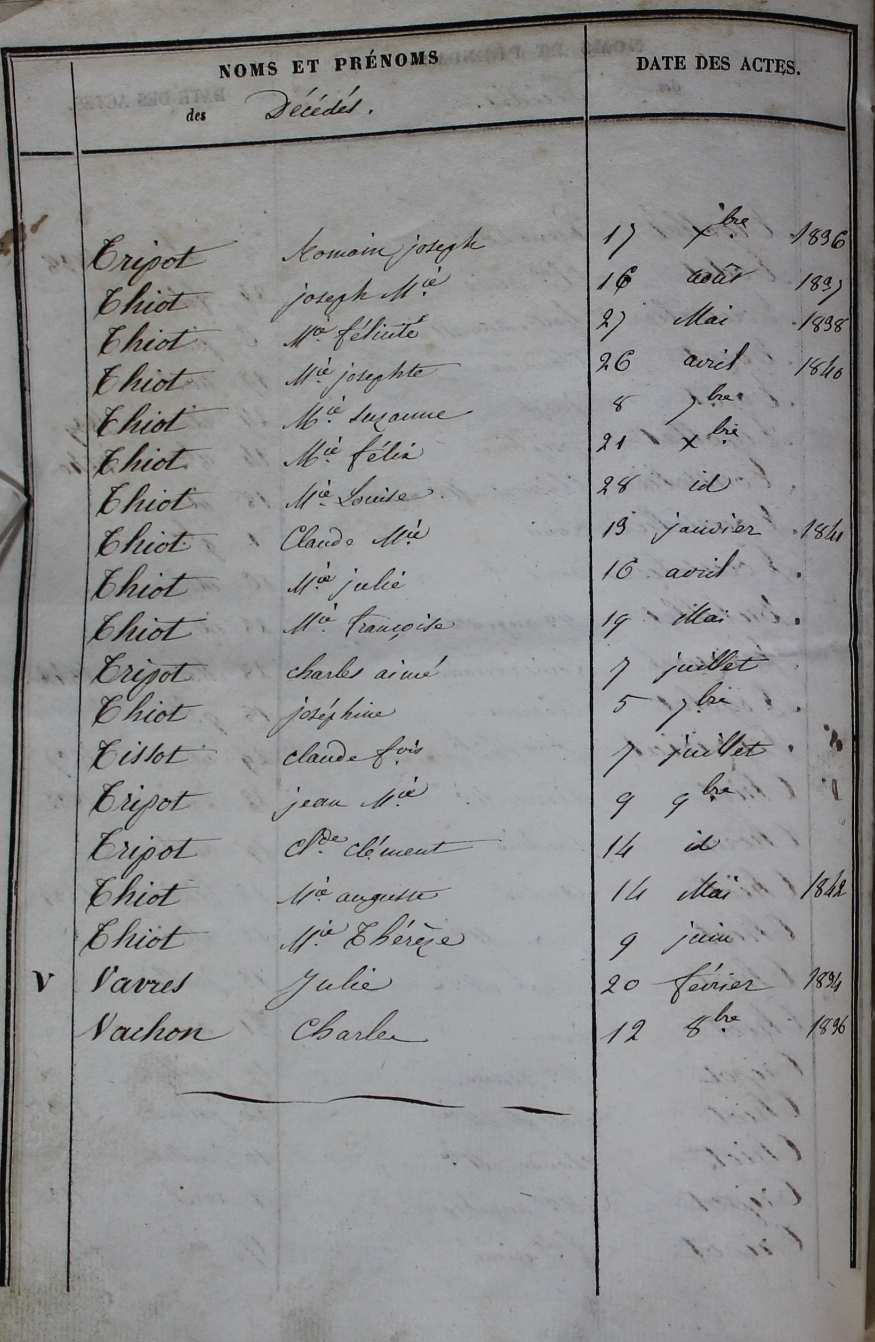 NOMS ET PRÉNOMS DATE DES ACTES.
des Décédés.
Tripot Romain joseph 17 xbre 1836
Thiot joseph Mie 16 août 1837
Thiot Mie félicité 27 Mai 1838
Thiot Mie josephte 26 avril 1840
Thiot Mie suzanne 8 7bre
Thiot Mie félix 21 xbre
Thiot Mie Louise 28 id
Thiot Claude Mie 13 janvier 1841
Thiot Mie julie 16 avril
Thiot Mie françoise 19 Mai
Tripot charles aimé 7 juillet
Thiot joséphine 5 7bre
Tissot claude fois 7 juillet
Tripot jean Mie 9 9bre
Tripot Cl.de clément 14 id
Thiot Mie auguste 14 Mai 1842
Thiot Mie Thérèze 9 juin
V Vavres Julie 20 février 1834
Vachon Charles 12 8bre 1836